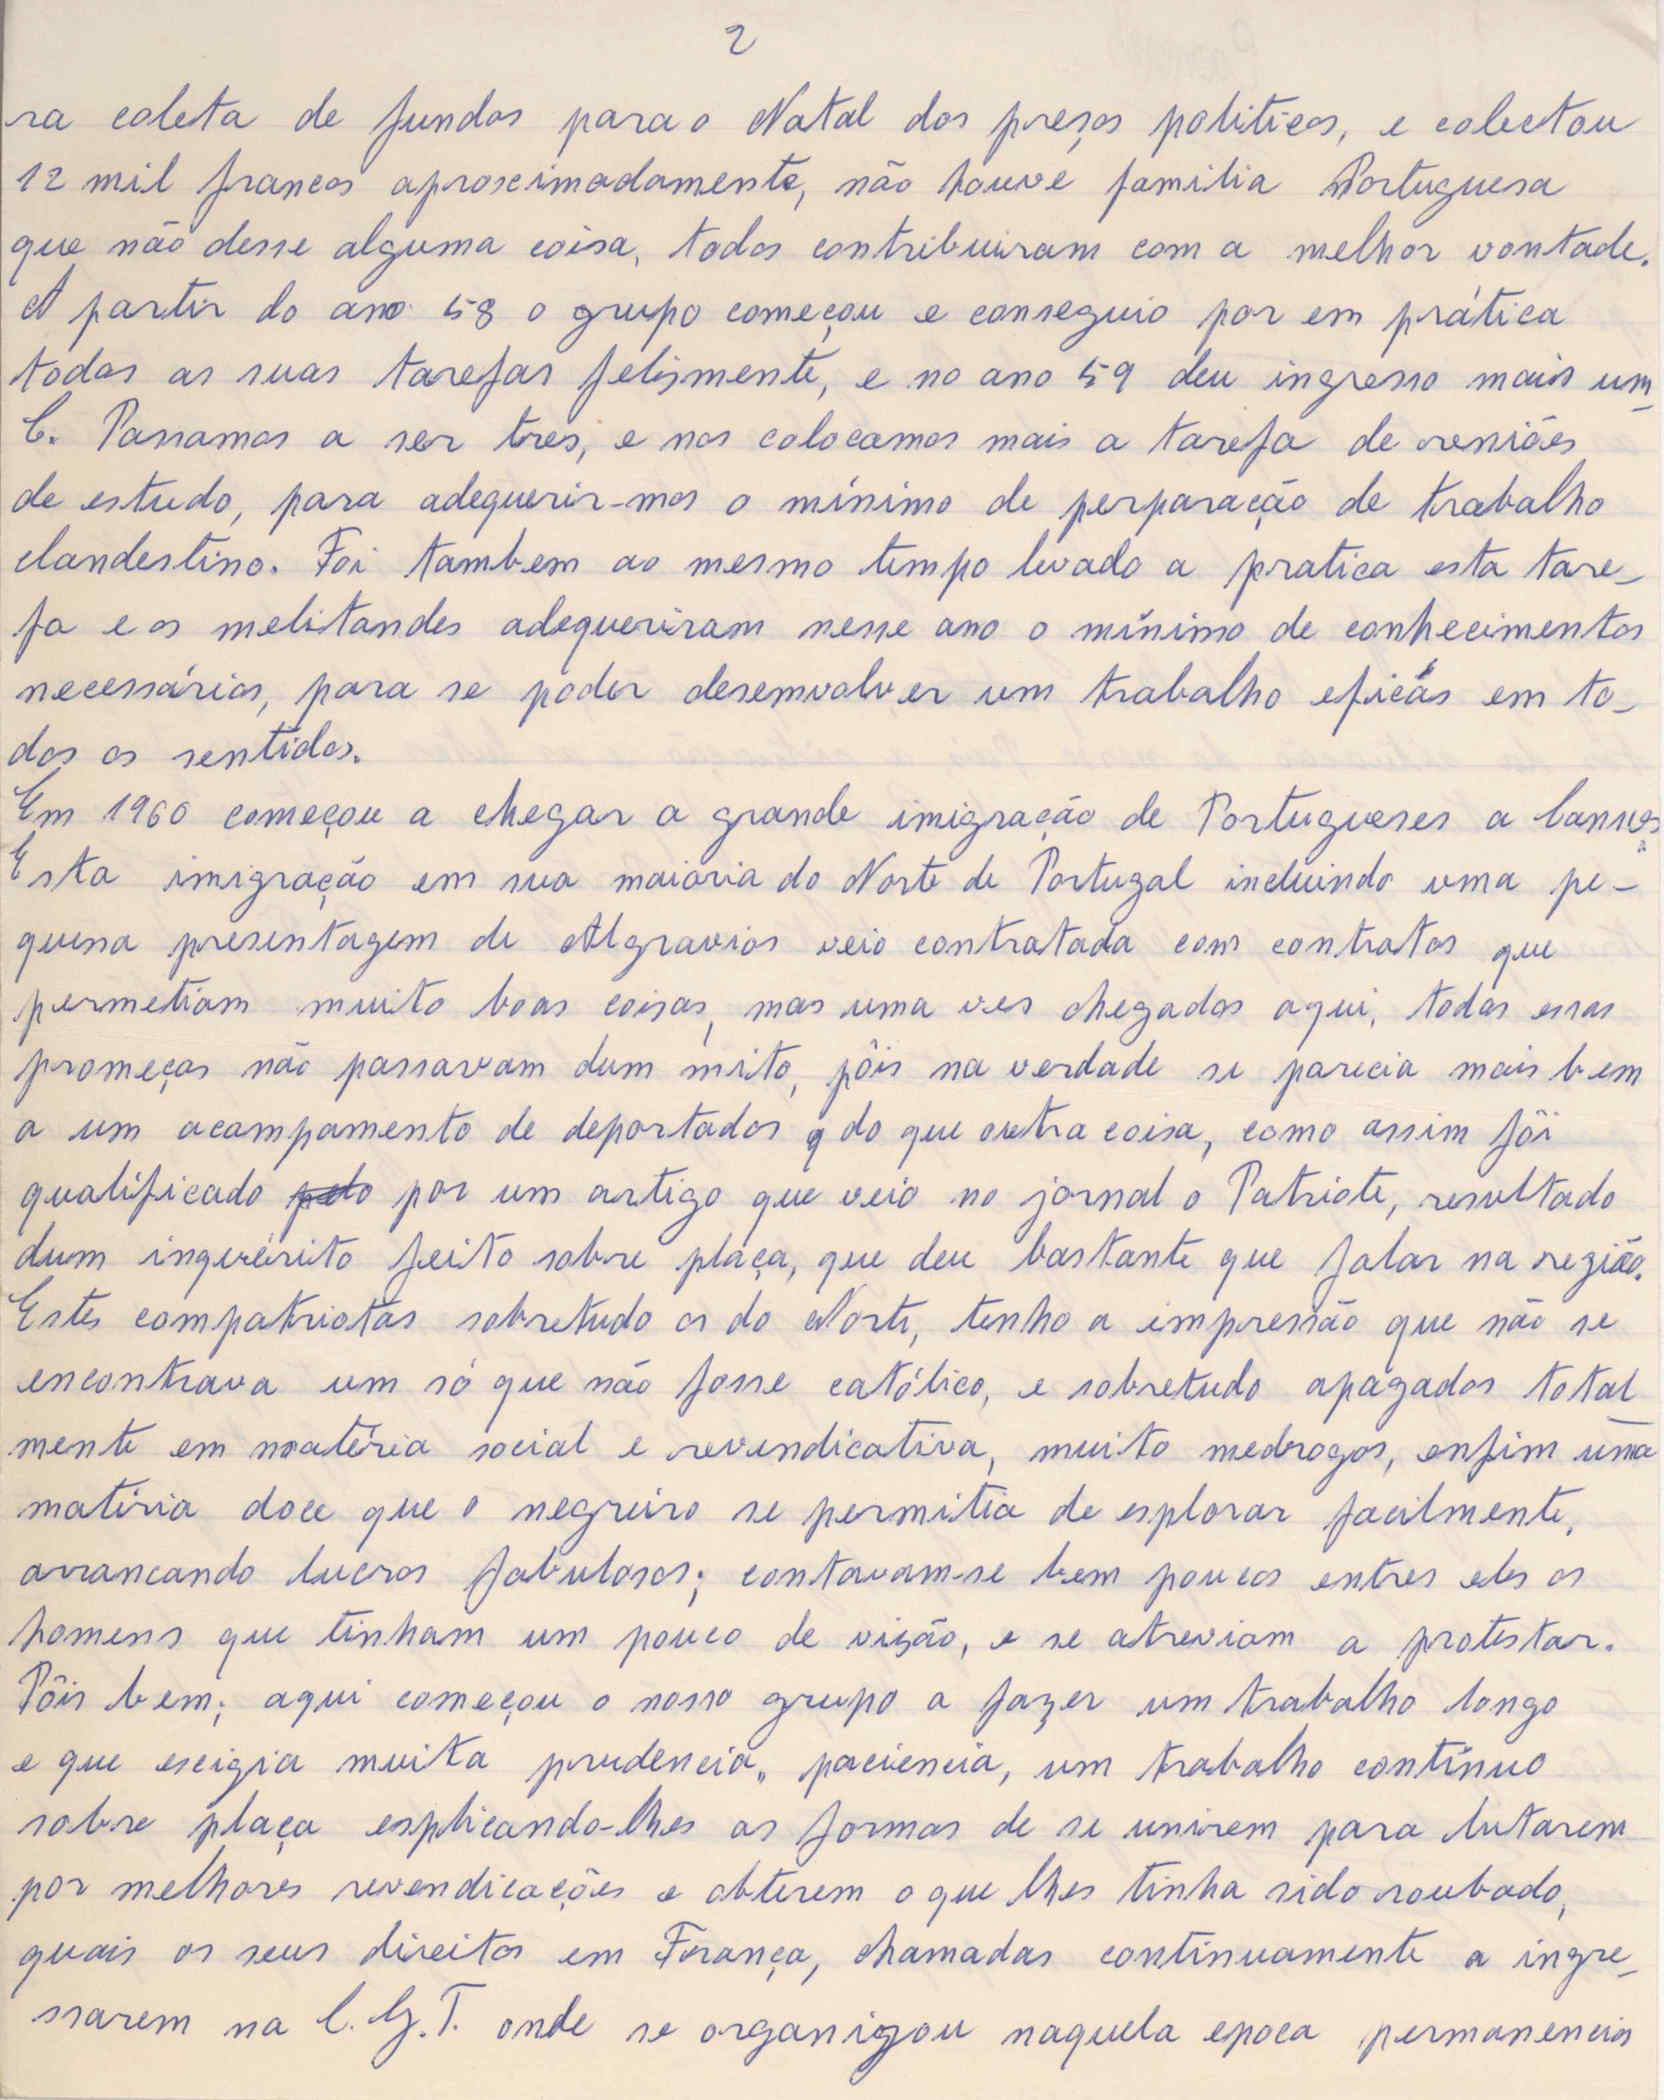 2
ra coleta de fundos para o Natal dos preços politicos, e colectou
12 mil francos aproscimadamente, não houve familia Portuguesa
que não desse alguma coisa, todos contribuiram com a melhor vontade.
A partir do ano 58 o grupo começou e conseguio por em prática
todas as suas tarefas felizmente, e no ano 59 deu ingresso mais um
C. Passamos a ser tres, e nos colocamos mais a tarefa de reniões
de estudo, para adequerir-mos o mínimo de perparação de trabalho
clandestino. Foi tambem ao mesmo tempo levado a pratica esta tare-
fa e os melitandes adequeriram nesse ano o mínimo de conhecimentos
necessários, para se poder desemvolver um trabalho eficás em to-
dos os sentidos.
Em 1960 começou a chegar a grande imigração de Portugueses a Cannes
Esta imigração em sua maioria do Norte de Portugal incluindo uma pe-
quena presentagem de Algravios veio contratada com contratos que
permetiam muito boas coisas, mas uma ves chegados aqui, todas essas
promeças não passavam dum mito, pôis na verdade se parecia mais bem
a um acampamento de deportados q do que outra coisa, como assim fôi
qualificado pelo por um artigo que veio no jornal o Patriote, resultado
dum inquérito feito sobre plaça, que deu bastante que falar na região.
Estes compatriotas sobretudo os do Norte, tenho a impressão que não se
encontrava um só que não fosse católico, e sobretudo apagados total
mente em matéria social e revendicativa, muito medrogos, enfim uma
matéria doce que o negreiro se permitia de esplorar facilmente,
arrancando lucros fabulosos; contavam-se bem poucos entres eles os
homens que tinham um pouco de visão, e se atreviam a protestar.
Pôis bem; aqui começou o nosso grupo a fazer um trabalho longo
e que escigia muita prudencia, paciencia, um trabalho contínuo
sobre plaça esplicando-lhes as formas de se unirem para lutarem
por melhores revendicações e obterem o que lhes tinha sido roubado,
quais os seus direitos em França, chamadas continuamente a ingre-
ssarem na C.G.T. onde se organizou naquela epoca permanencias